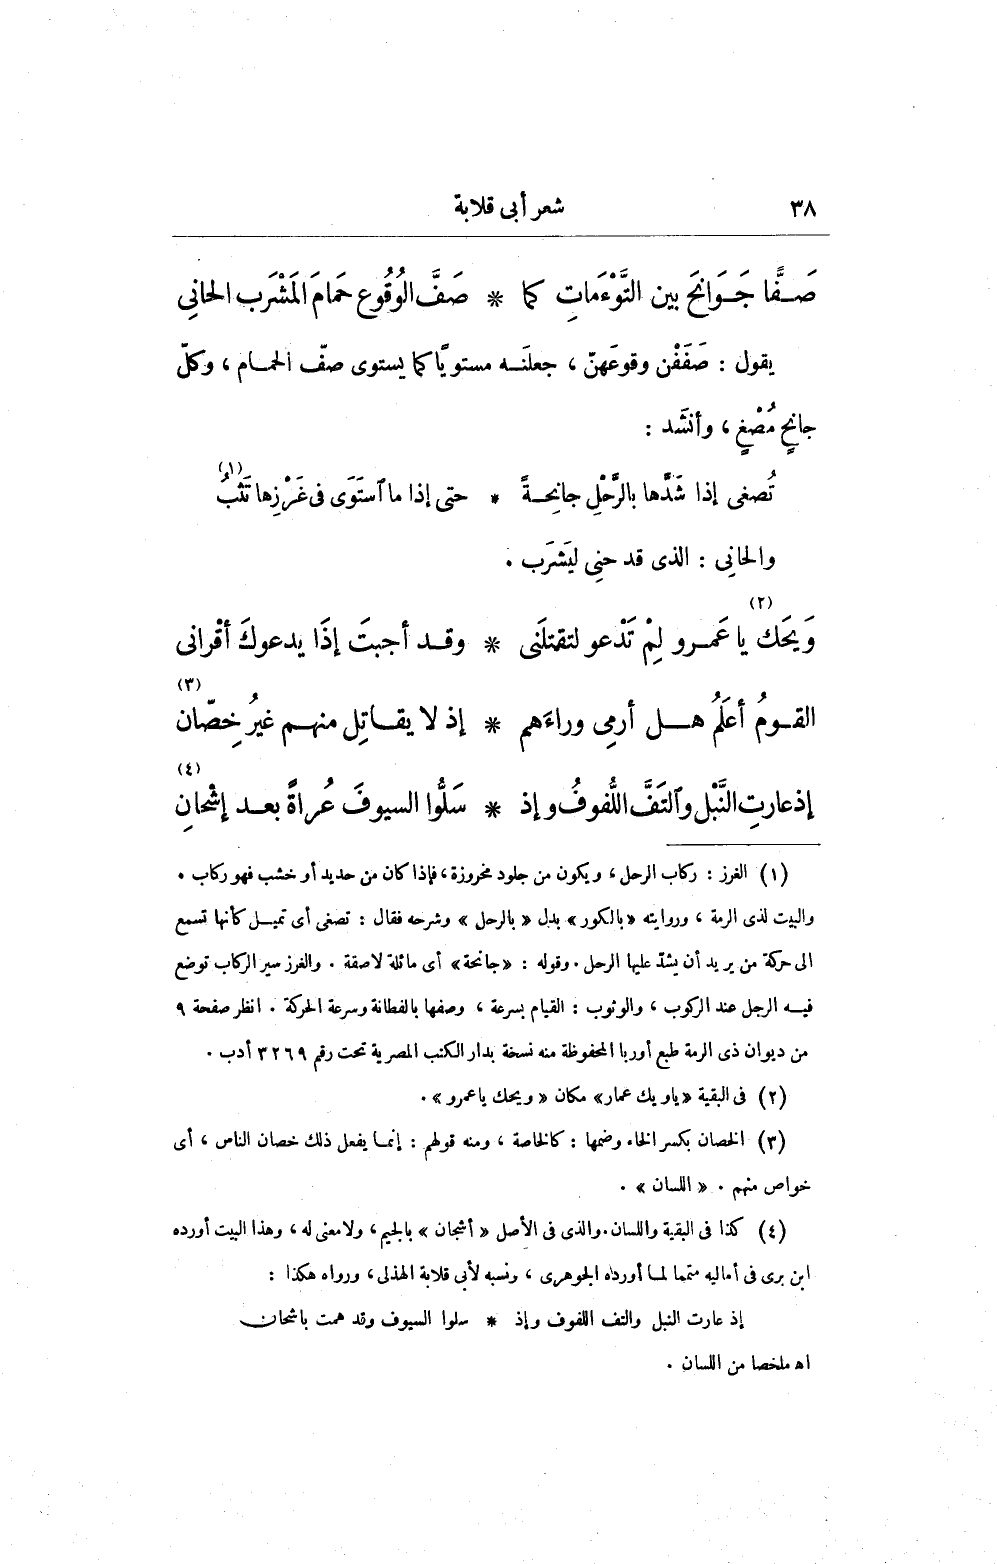 ٣٨ شعر أبى قلابة
صَفًّا جَوَانِحَ بين التَّوْءَمَاتِ كما * صَفَّ الوُقُوع حَمامَ المَشْرَب الحانِي
يقول : صَفَفْن وقوعَهنّ ، جعلَنَه مستويًّا كما يستوى صفّ الحمام ، وكلّ
جانِحٍ مُصْغٍ ، وأنشَد :
تُصغى إذا شَدَّها بالرَّحْلِ جانِحةً * حتى إذا ما ٱستَوَى فى غَرْزِها تَثْبُ (١)
والحانِي : الذى قد حنِى ليَشرَب .
وَيحَك يا عَمرو لِمْ تَدْعو لتقتلَنى (٢) * وقد أجبتَ إذَا يدعوكَ أقْرانى
القومُ أعلَمُ هل أرمِى وراءَهم * إذ لا يقاتِل منهم غيرُ خِصّان (٣)
إذ عارتِ النَّبْل وٱلتَفَّ اللُّفوفُ وإذ * سَلُّوا السيوفَ عُراةً بعد إشْحانِ (٤)
(١) الغرز : ركاب الرحل ، ويكون من جلود مخروزة ، فإذا كان من حديد أو خشب فهو ركاب .
والبيت لذى الرمة ، وروايته «بالكور» بدل «بالرحل» وشرحه فقال : تصغى أى تميل كأنها تسمع
الى حركة من يريد أن يشدّ عليها الرحل . وقوله : «جانحة» أى مائلة لاصقة . والغرز سير الركاب توضع
فيه الرجل عند الركوب ، والوثوب : القيام بسرعة ، وصفها بالفطانة وسرعة الحركة . انظر صفحة ٩
من ديوان ذى الرمة طبع أوربا المحفوظة منه نسخة بدار الكتب المصرية تحت رقم ٣٢٦٩ أدب .
(٢) فى البقية «ياويك عمار» مكان «ويحك ياعمرو» .
(٣) الخصان بكسر الخاء وضمها : كالخاصة ، ومنه قولهم : إنما يفعل ذلك خصان الناس ، أى
خواص منهم . «اللسان» .
(٤) كذا فى البقية واللسان . والذى فى الأصل «أشجان» بالجيم ، ولا معنى له ، وهذا البيت أورده
ابن برى فى أماليه متمما لما أورده الجوهرى ، ونسبه لأبى قلابة الهذلى ، ورواه هكذا :
إذ عارت النبل والتف اللفوف وإذ * سلوا السيوف وقد همت باشحان
اه ملخصا من اللسان .